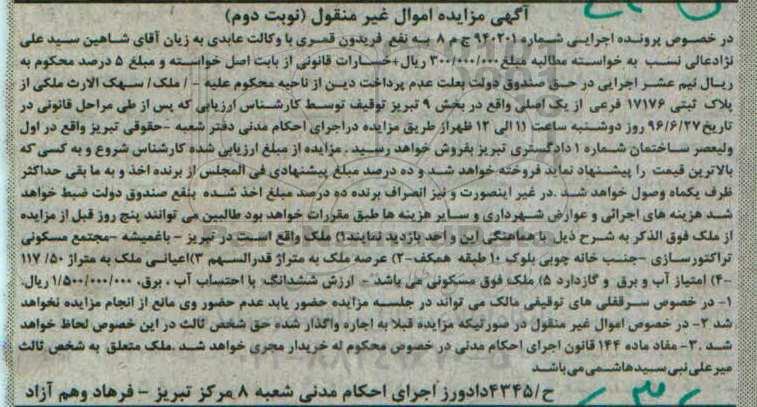 آگهی مزایده اموال غیر منقول (نوبت دوم)
در خصوص پرونده اجرایی شماره ۹۴۰۲۰۱ ج م ۸ به نفع فریدون قمری با وکالت عابدی به زیان آقای شاهین سید علی
نژادعالی نسب به خواسته مطالبه مبلغ ۳۰۰/۰۰۰/۰۰۰ ریال+خسارات قانونی از بابت اصل خواسته و مبلغ ۵ درصد محکوم به
ریال نیم عشر اجرایی در حق صندوق دولت بعلت عدم پرداخت دین از ناحیه محکوم علیه - / ملک/ سهک الارث ملکی از
پلاک ثبتی ۱۷۱۷۶ فرعی از یک اصلی واقع در بخش ۹ تبریز توقیف توسط کارشناس ارزیابی که پس از طی مراحل قانونی در
تاریخ ۹۶/۶/۲۷ روز دوشنبه ساعت ۱۱ الی ۱۲ ظهراز طریق مزایده دراجرای احکام مدنی دفتر شعبه -حقوقی تبریز واقع در اول
ولیعصر ساختمان شماره ۱ دادگستری تبریز بفروش خواهد رسید . مزایده از مبلغ ارزیابی شده کارشناس شروع و به کسی که
بالاترین قیمت را پیشنهاد نماید فروخته خواهد شد و ده درصد مبلغ پیشنهادی فی المجلس از برنده اخذ و به ما بقی حداکثر
ظرف یکماه وصول خواهد شد .در غیر اینصورت و نیز انصراف برنده ده درصد مبلغ اخذ شده بنفع صندوق دولت ضبط خواهد
شد هزینه های اجرائی و عوارض شهرداری و سایر هزینه ها طبق مقررات خواهد بود طالبین می توانند پنج روز قبل از مزایده
از ملک فوق الذکر به شرح ذیل با هماهنگی این و احد بازدید نمایند۱) ملک واقع است در تبریز - باغمیشه -مجتمع مسکونی
تراکتورسازی -جنب خانه چوبی بلوک ۱۰ طبقه همکف ۲-) عرصه ملک به متراژ قدرالسهم ۳)اعیانی ملک به متراژ ۵۰/ ۱۱۷
-۴) امتیاز آب و برق و گازدارد ۵) ملک فوق مسکونی می باشد - ارزش ششدانگ با احتساب آب ، برق، ۱/۵۰۰/۰۰۰/۰۰۰ ریال.
۱- در خصوص سرقفلی های توقیفی مالک می تواند در جلسه مزایده حضور یابد عدم حضور وی مانع از انجام مزایده نخواهد
شد ۲- در خصوص اموال غیر منقول در صورتیکه مزایده قبلا به اجاره واگذار شده حق شخص ثالث در این خصوص لحاظ خواهد
شد .۳- مفاد ماده ۱۴۴ قانون اجرای احکام مدنی در خصوص محکوم له خریدار مجری خواهد شد .ملک متعلق به شخص ثالث
میرعلی نبی سیدهاشمی می باشد
ح/۴۳۴۵دادورز اجرای احکام مدنی شعبه ۸ مرکز تبریز - فرهاد وهم آزاد